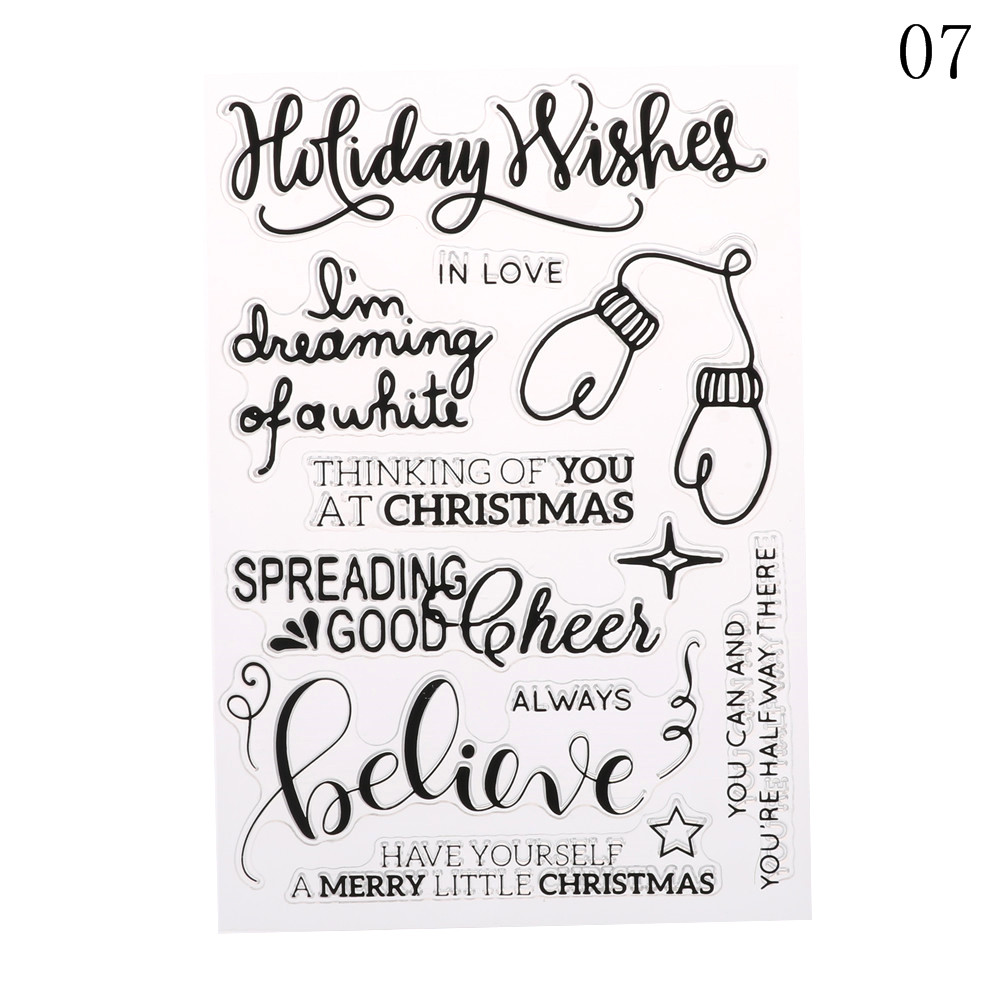 07
Holiday Wishes
IN LOVE
I'm
dreaming
of a white
THINKING OF YOU
AT CHRISTMAS
SPREADING
GOOD Cheer
ALWAYS
believe
YOU CAN AND
YOU'RE HALF WAY THERE
HAVE YOURSELF
A MERRY LITTLE CHRISTMAS